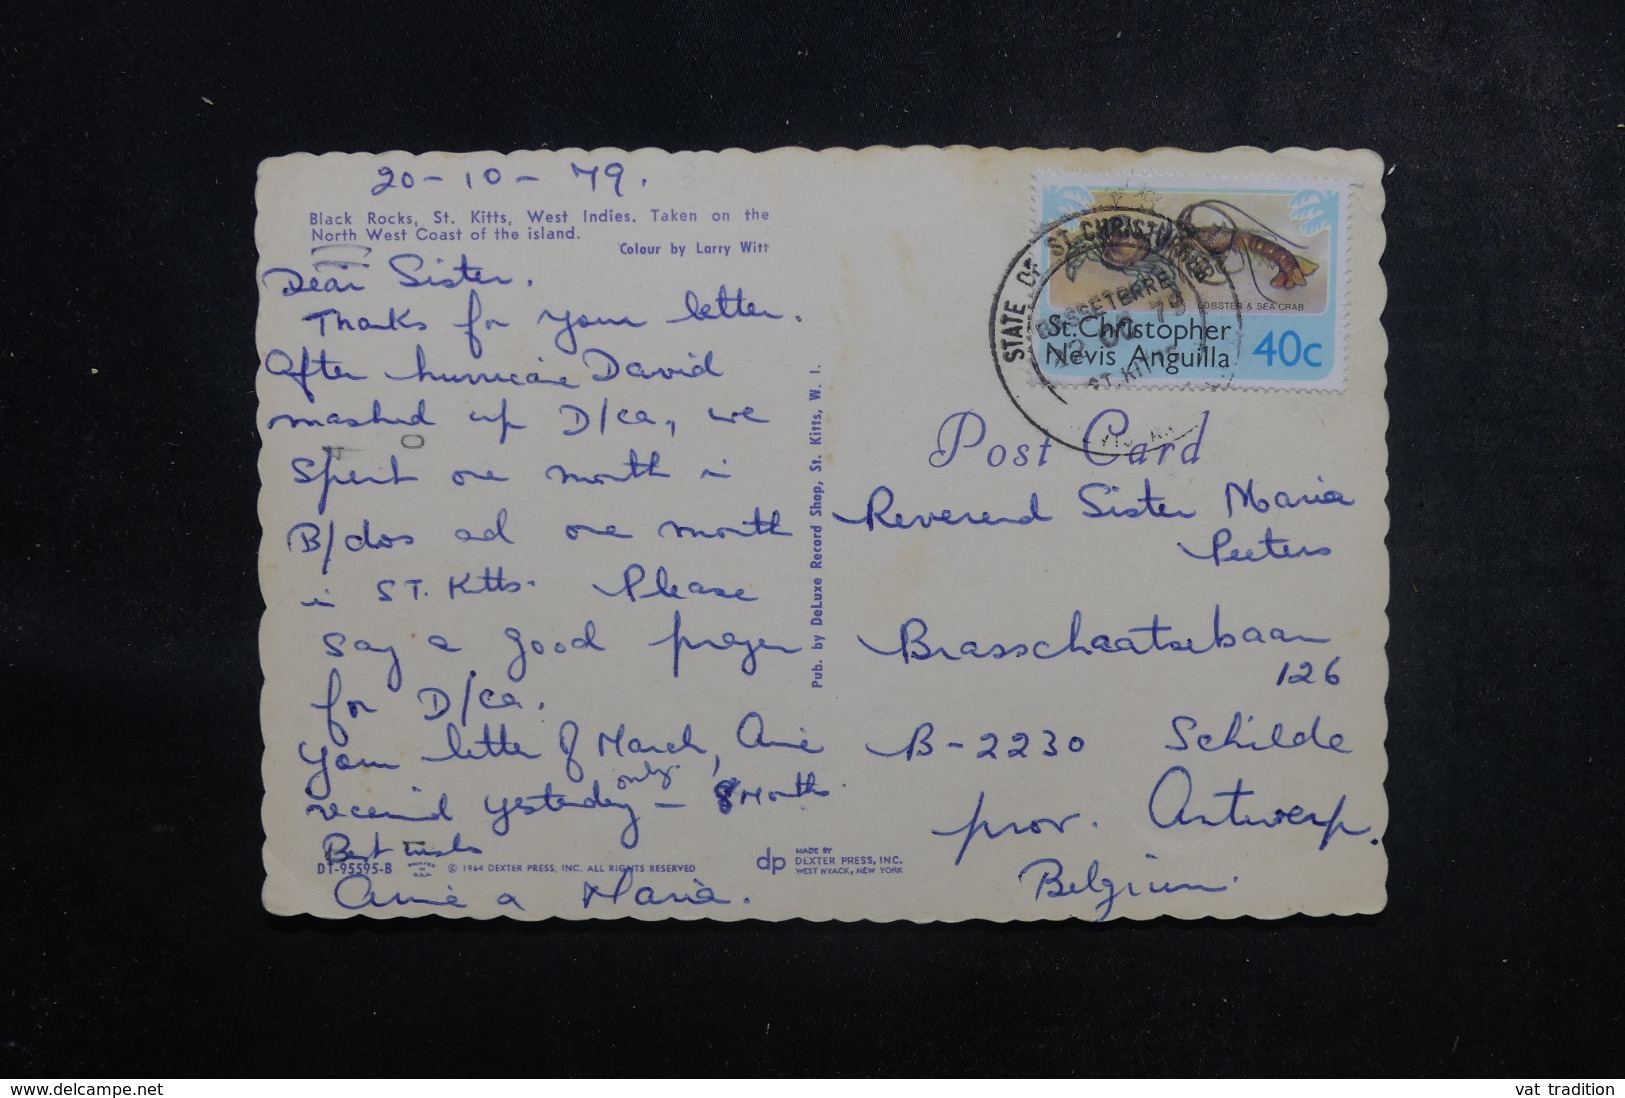 20-10-79.
Black Rocks, St. Kitts, West Indies. Taken on the
North West Coast of the island.
Colour by Larry Witt
Dear Sister.
Thanks for your letter.
After hurricane David
mashed up D/ca, we
spent one month in
B/dos ad one month
in ST. Kitts. Please
say a good prayer
for D/ca.
Your letter of March,
received yesterday – only 8 Months.
Best wishes
DT-95595-B
© 1964 DEXTER PRESS, INC. ALL RIGHTS RESERVED
Maria.
dp
MADE BY
DEXTER PRESS, INC.
WEST NYACK, NEW YORK
Pub. by DeLuxe Record Shop, St. Kitts, W. I.
LOBSTER & SEA CRAB
St. Christopher
Nevis Anguilla 40c
STATE OF ST. CHRISTOPHER
BASSETERRE
ST. KITTS
Post Card
Reverend Sister Maria
Peeters
Brasschaatsebaan
126
B-2230 Schilde
prov. Antwerp.
Belgium.
www.delcampe.net
vat tradition